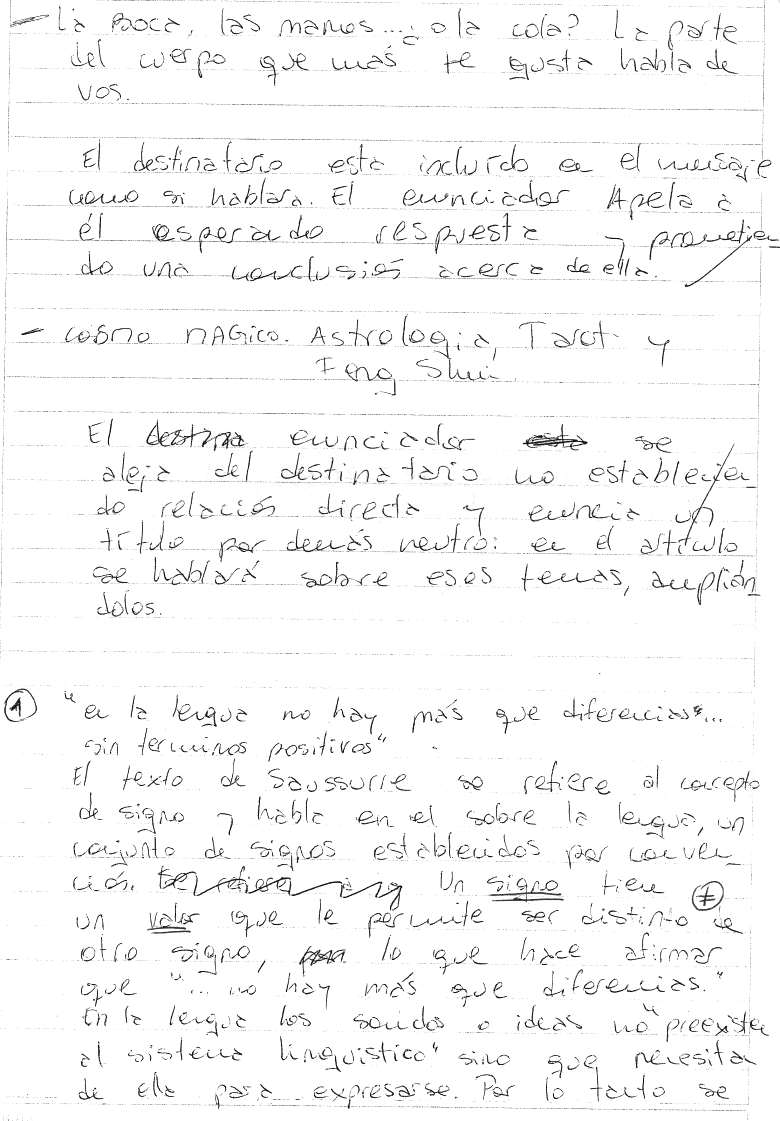 - La Boca, las manos...¿ o la cola? La parte
del cuerpo que más te gusta habla de
vos.
El destinatario esta incluído en el mensaje
como si hablara. El enunciador Apela a
él esperando respuesta y prometien_
do una conclusión acerca de ella.
- COSMO MAGICO. Astrologia, Tarot y
Feng Shui.
El enunciador se
aleja del destinatario no establecien_
do relación directa y enuncia un
título por demás neutro: en el artículo
se hablará sobre esos temas, amplián_
dolos.
1 "en la lengua no hay más que diferencias"...
sin terminos positivos".
El texto de Saussurre se refiere al concepto
de signo y habla en el sobre la lengua, un
conjunto de signos establecidos por conven_
ción. Un signo tiene ≠
un valor que le permite ser distinto de
otro signo, lo que hace afirmar
que "... no hay más que diferencias."
En la lengua los sonidos o ideas no "preexisten
al sistema linguistico" sino que necesitan
de ella para expresarse. Por lo tanto se